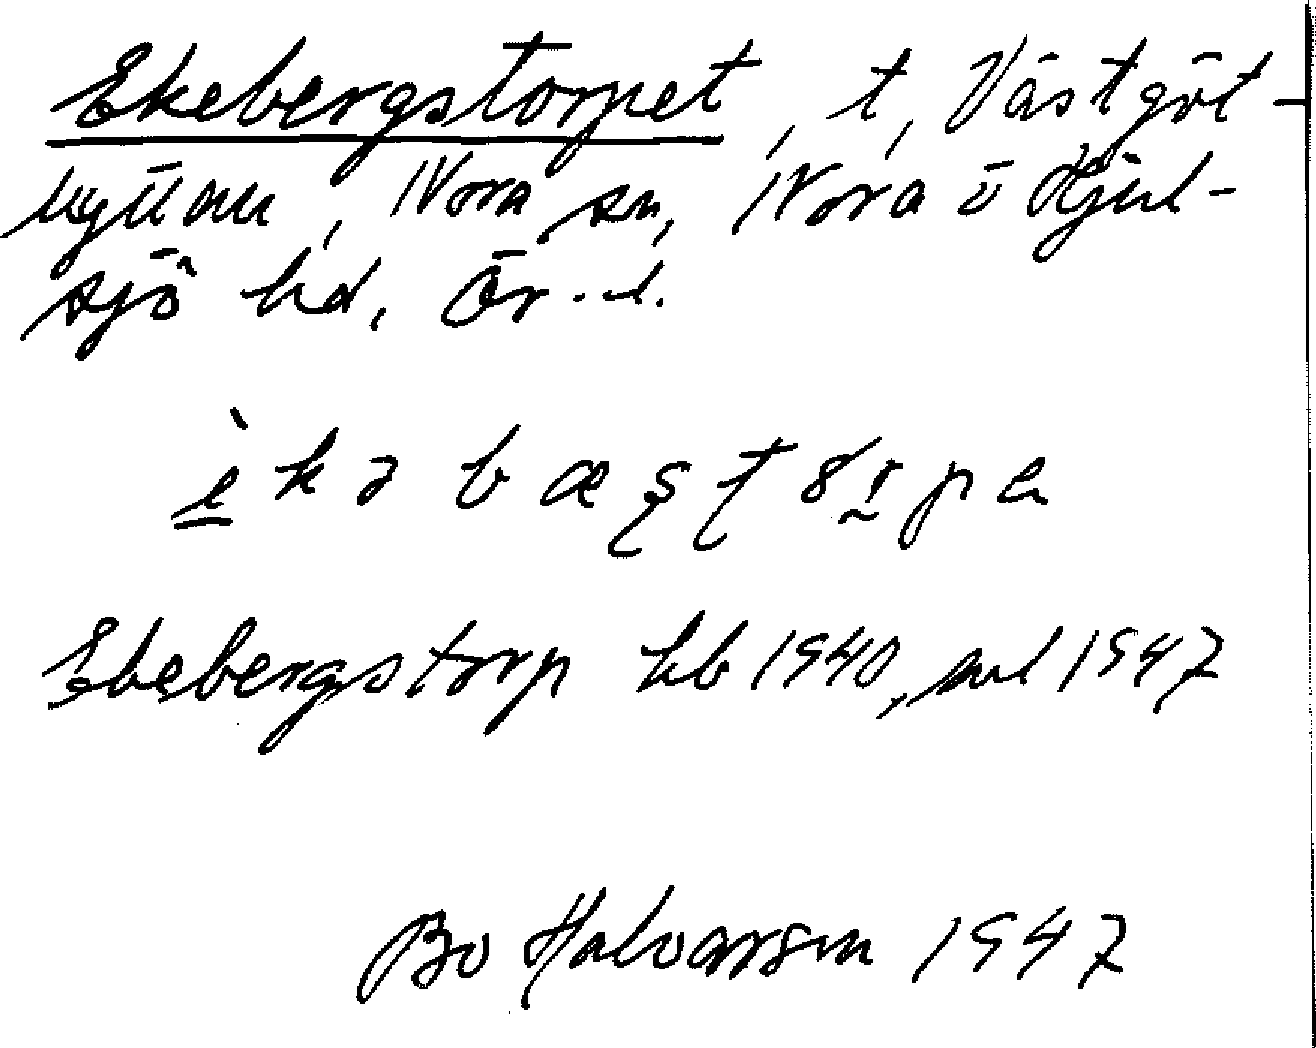 Ekebergstorpet, t, Västgöt-
hyttan, Nora sn, Nora o Hjul-
sjö hd, Ör. l.
Ekebergstorp kb 1940, ml 1947
Bo Halvarson 1947